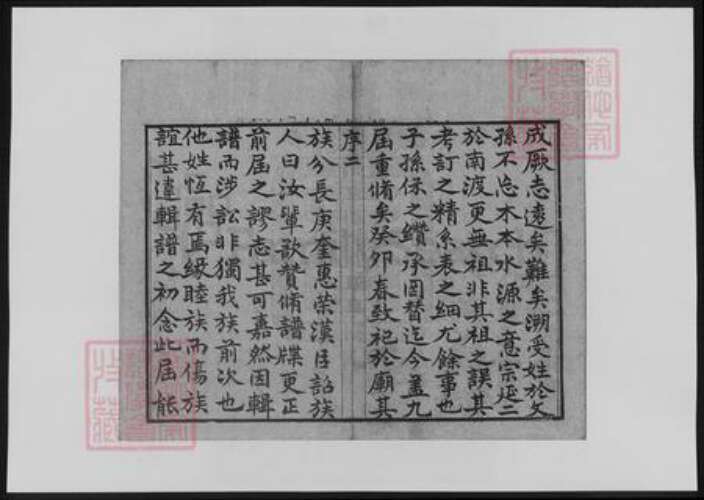 成厥志遠矣難矣溯受姓於文
孫不忘木本水源之意宗延二
於南渡更無祖非其祖之誤其
考訂之精系表之細尤餘事也
子孫保之纘承罔替迄今蓋九
屆重脩矣癸卯春致祀於廟其
序二
族分長庚奎惠榮漢臣詒族
人曰汝輩歌贊脩譜牒更正
前屆之謬志甚可嘉然因輯
譜而涉訟非獨我族前次也
他姓恆有焉緣睦族而傷族
誼甚違輯譜之初念此屆能